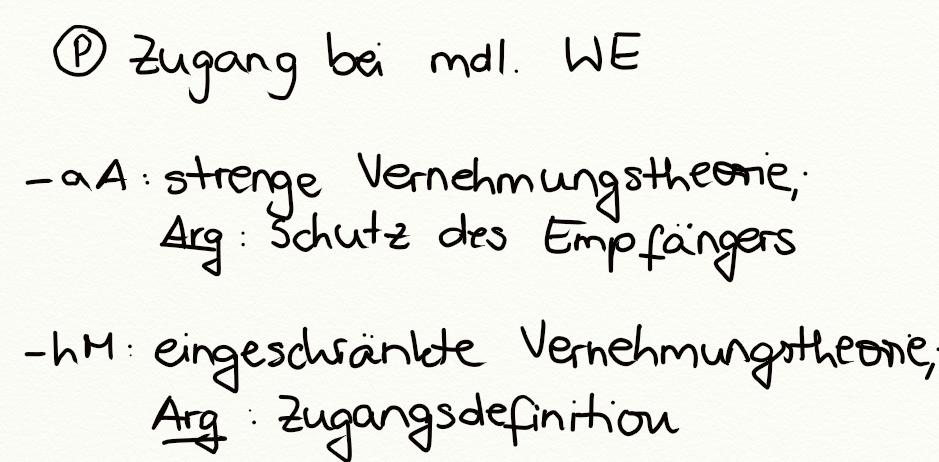 Ⓟ Zugang bei mdl. WE
- aA: strenge Vernehmungstheorie;
Arg: Schutz des Empfängers
- hM: eingeschränkte Vernehmungstheorie;
Arg: Zugangsdefinition